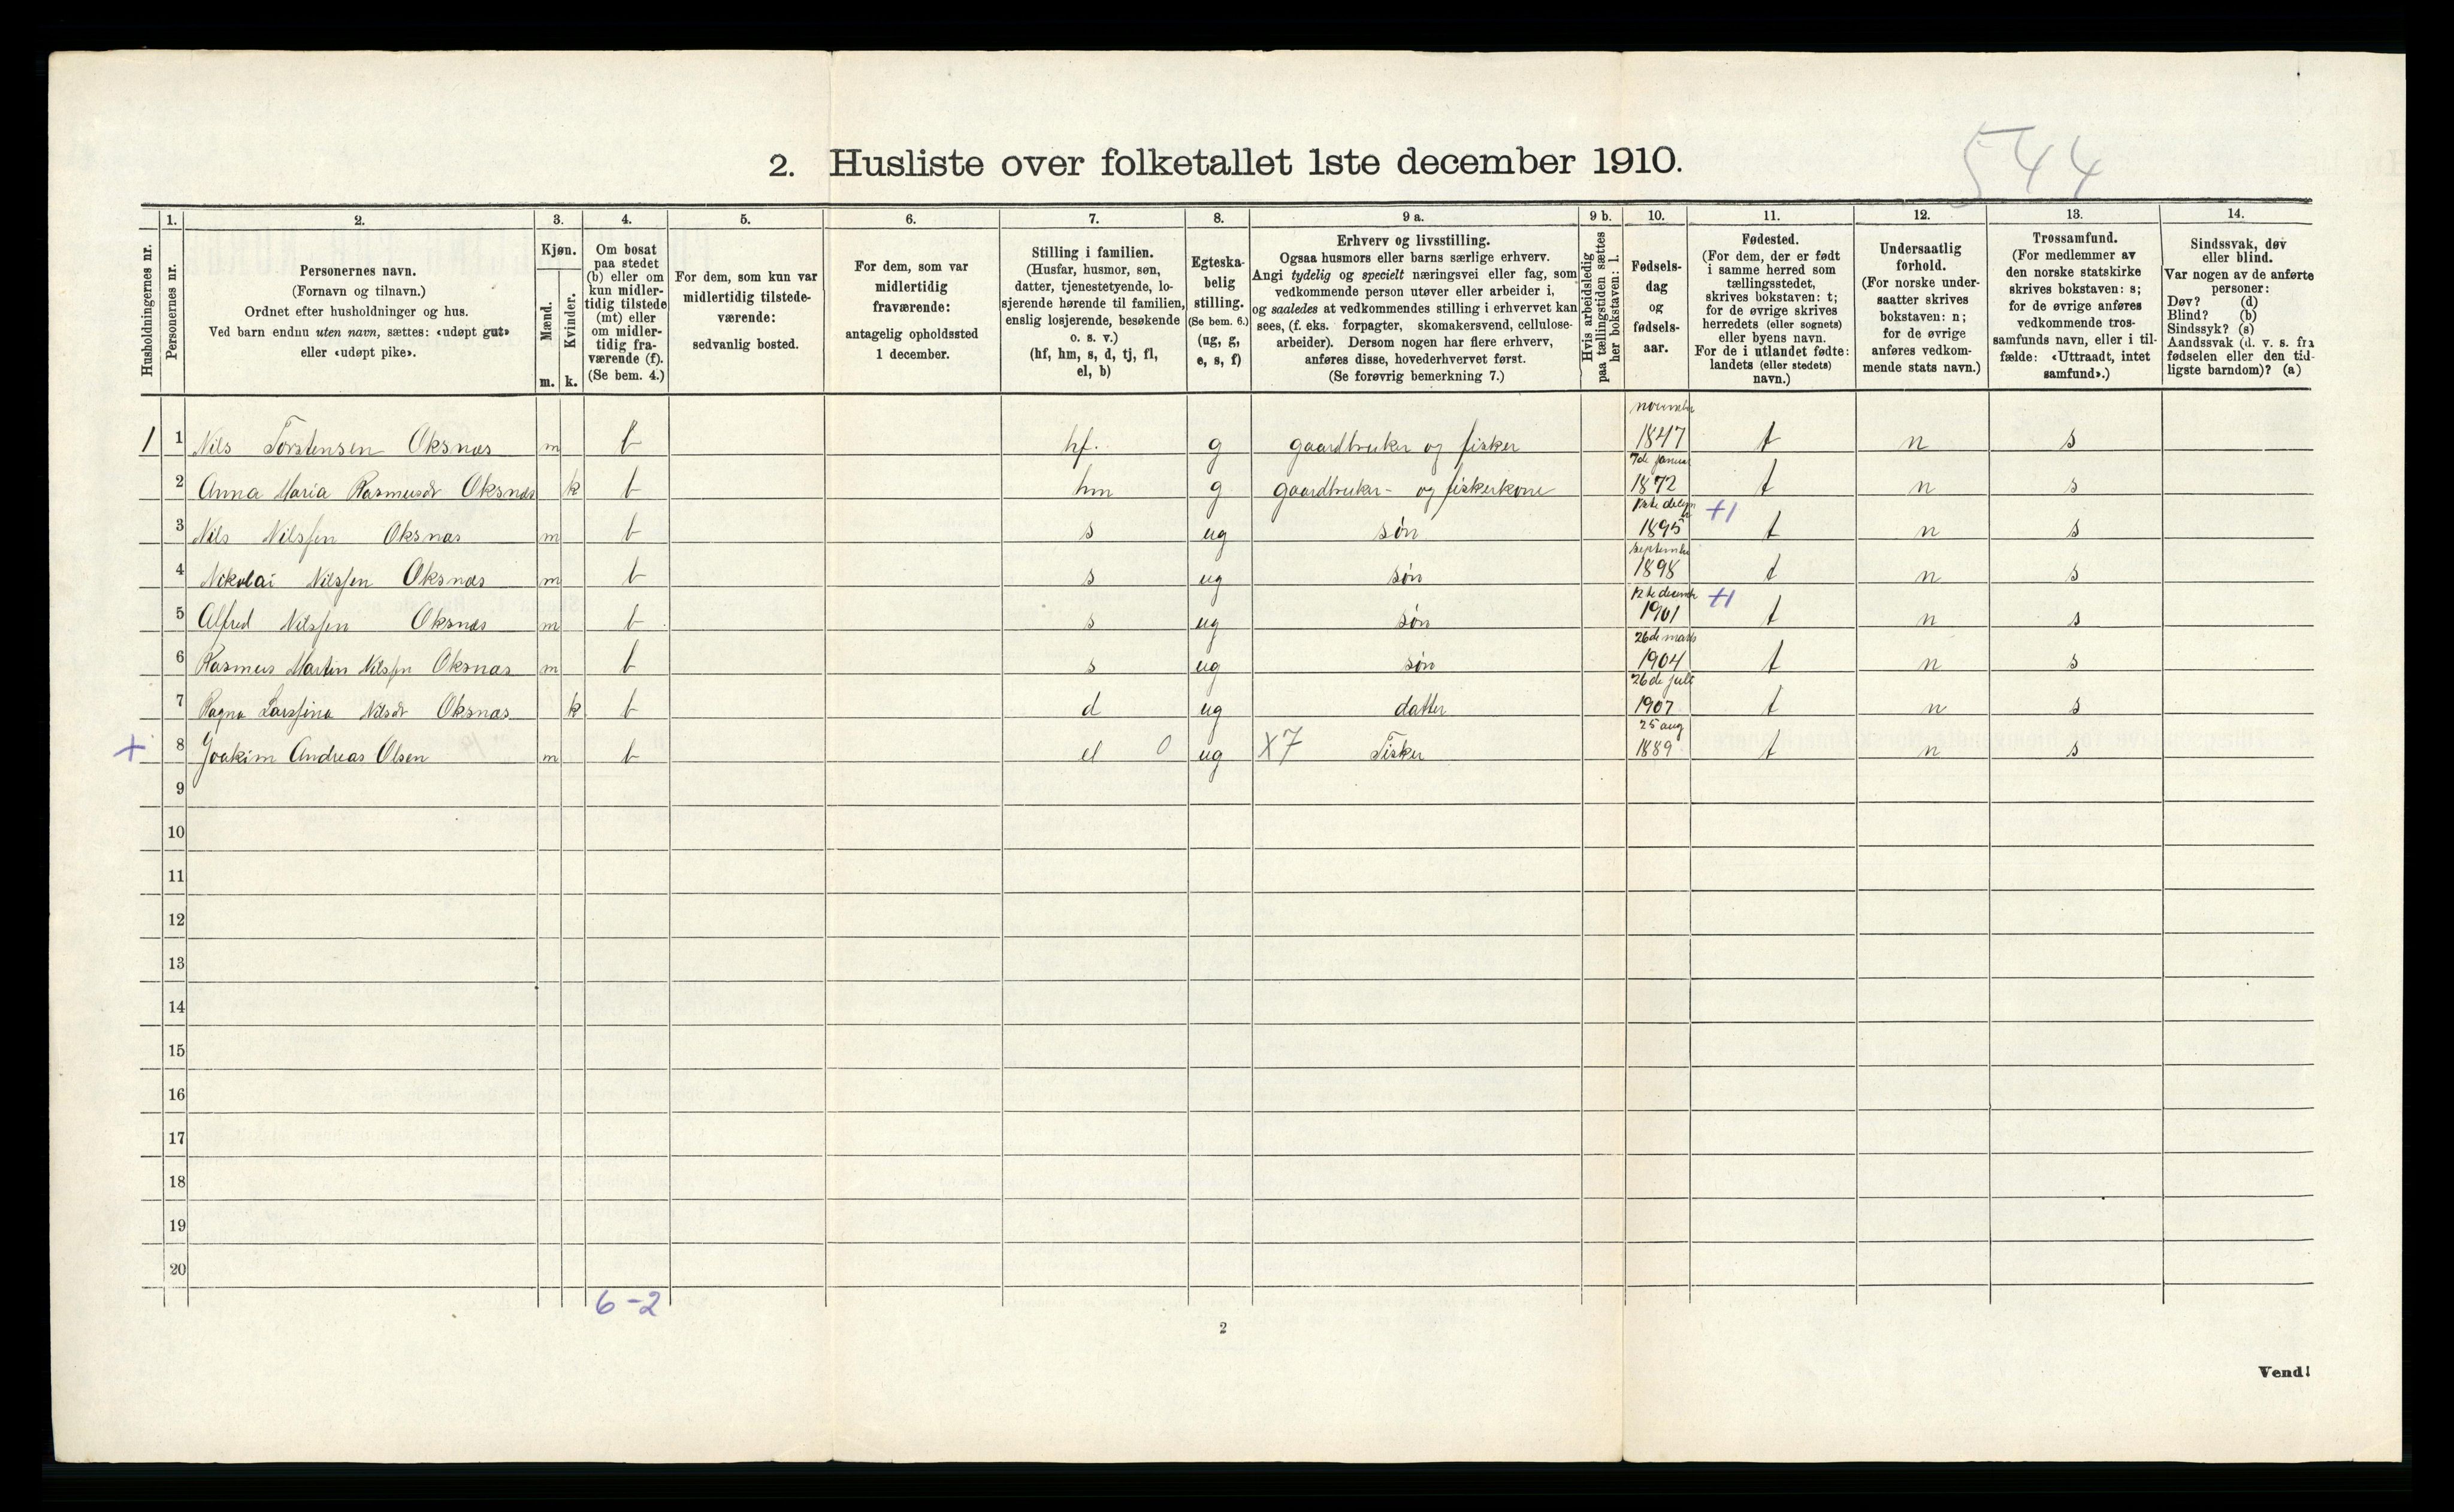 544
2. Husliste over folketallet 1ste december 1910.
Husholdningernes nr.
1.
Personernes nr.
2.
Personernes navn.
(Fornavn og tilnavn.)
Ordnet efter husholdninger og hus.
Ved barn endnu uten navn, sættes: «udøpt gut»
eller «udøpt pike».
3.
Kjøn.
Mænd.
Kvinder.
m. k.
4.
Om bosat
paa stedet
(b) eller om
kun midler-
tidig tilstede
(mt) eller
om midler-
tidig fra-
værende (f).
(Se bem. 4.)
5.
For dem, som kun var
midlertidig tilstede-
værende:
sedvanlig bosted.
6.
For dem, som var
midlertidig
fraværende:
antagelig opholdssted
1 december.
7.
Stilling i familien.
(Husfar, husmor, søn,
datter, tjenestetyende, lo-
sjerende hørende til familien,
enslig losjerende, besøkende
o. s. v.)
(hf, hm, s, d, tj, fl,
el, b)
8.
Egteska-
belig
stilling.
(Se bem. 6.)
(ug, g,
e, s, f)
9 a.
Erhverv og livsstilling.
Ogsaa husmors eller barns særlige erhverv.
Angi tydelig og specielt næringsvei eller fag, som
vedkommende person utøver eller arbeider i,
og saaledes at vedkommendes stilling i erhvervet kan
sees, (f. eks. forpagter, skomakersvend, cellulose-
arbeider). Dersom nogen har flere erhverv,
anføres disse, hovederhvervet først.
(Se forøvrig bemerkning 7.)
9 b.
Hvis arbeidsledig
paa tællingstiden sættes
her bokstaven: l.
10.
Fødsels-
dag
og
fødsels-
aar.
11.
Fødested.
(For dem, der er født
i samme herred som
tællingsstedet,
skrives bokstaven: t;
for de øvrige skrives
herredets (eller sognets)
eller byens navn.
For de i utlandet fødte:
landets (eller stedets)
navn.)
12.
Undersaatlig
forhold.
(For norske under-
saatter skrives
bokstaven: n;
for de øvrige
anføres vedkom-
mende stats navn.)
13.
Trossamfund.
(For medlemmer av
den norske statskirke
skrives bokstaven: s;
for de øvrige anføres
vedkommende tros-
samfunds navn, eller i til-
fælde: «Uttraadt, intet
samfund».)
14.
Sindssvak, døv
eller blind.
Var nogen av de anførte
personer:
Døv? (d)
Blind? (b)
Sindssyk? (s)
Aandssvak (d. v. s. fra
fødselen eller den tid-
ligste barndom)? (a)
november
1 1 Nils Torstensen Oksnæs m b hf. g gaardbruker og fisker 1847 t n s
7de januar
2 Anna Maria Rasmusdr Oksnæs k b hm g gaardbruker- og fiskerkone 1872 t n s
3 Nils Nilssen Oksnæs m b s ug søn 1895 +1 t n s
september
4 Nikolai Nilssen Oksnæs m b s ug søn 1898 t n s
12te decembr
5 Alfred Nilssen Oksnæs m b s ug søn 1901 +1 t n s
26de mars
6 Rasmus Martin Nilssen Oksnæs m b s ug søn 1904 t n s
26de juli
7 Ragna Larssina Nilsdr Oksnæs k b d ug datter 1907 t n s
25 aug
+ 8 Joakim Andreas Olsen m b el 0 ug X7 Fisker 1889 t n s
9
10
11
12
13
14
15
16
17
18
19
20
6-2
2
Vend!